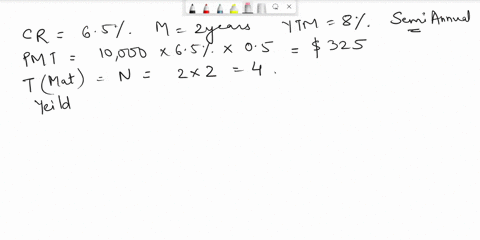 CR = 6.5%. M = 2years YTM = 8%. Semi Annual
PMT = 10,000 × 6.5% × 0.5 = $325
T (Mat) = N = 2×2 = 4.
Yeild